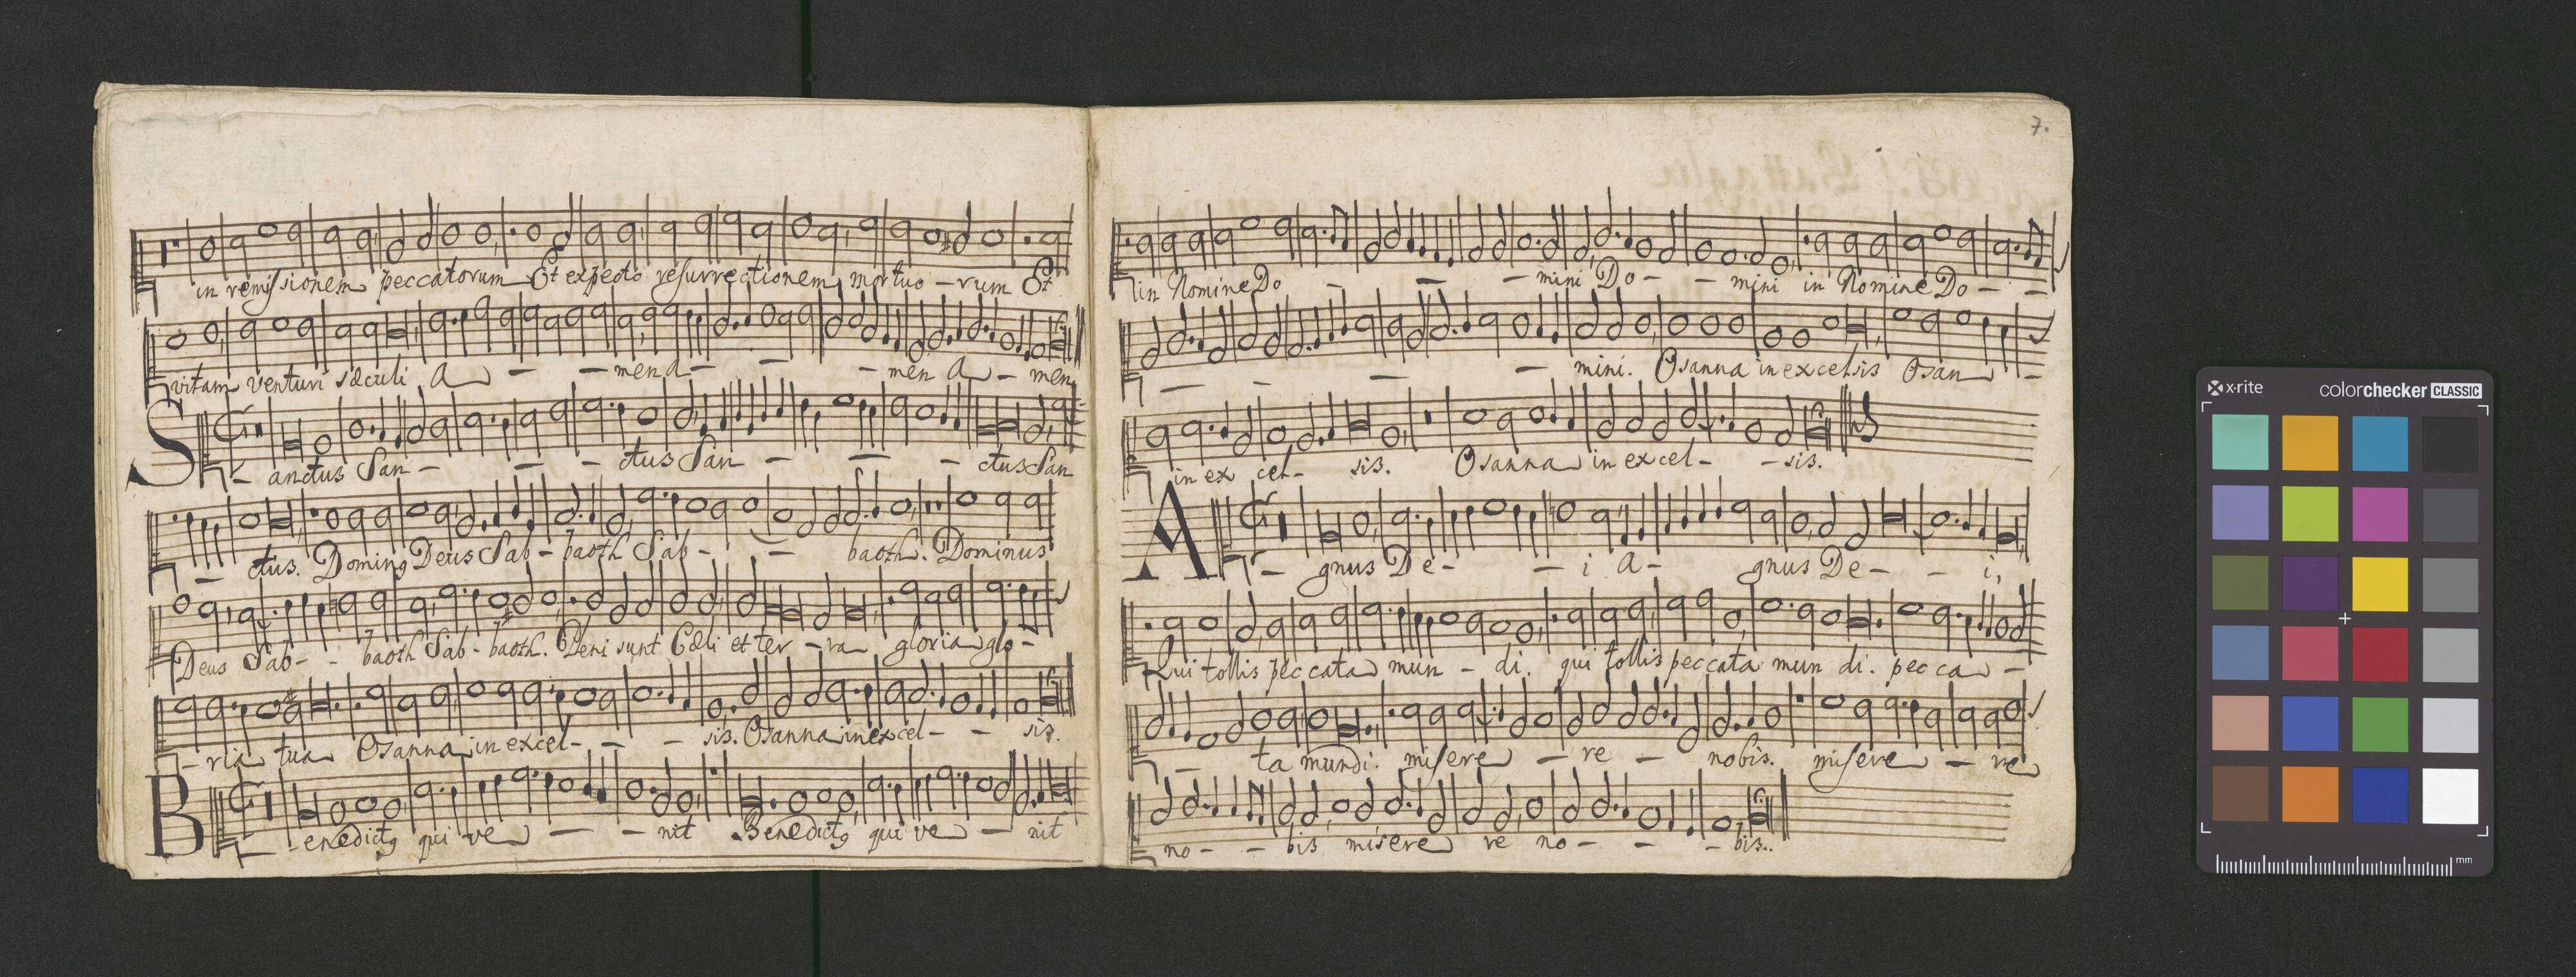 in remissionem peccatorum Et expecto resurrectionem mortuo - rum Et
vitam venturi sæculi A - - men A - - - men A - men
S - anctus San - - - ctus San - - - ctus San
- ctus. Dominꝰ Deus Sab - baoth Sab - - baoth. Dominus
Deus Sab - - baoth Sab - baoth. Pleni sunt Cæli et ter - ra gloria glo -
- ria tua Osanna in excel - - - sis. Osanna in excel - - sis.
B - enedictꝰ qui ve - - nit Benedictꝰ qui ve - nit
7.
in Nomine Do - - - mini Do - - mini in Nomine Do - -
- - - - mini. Osanna in excelsis Osan - -
in ex cel - sis. Osanna in excel - - sis.
A - gnus De - - i A - gnus De - - i,
Qui tollis peccata mun - di. qui tollis peccata mun di. pec ca -
- ta mundi. misere - re - nobis. misere - re
no - - bis misere re no - - - bis..
x-rite colorchecker CLASSIC
mm